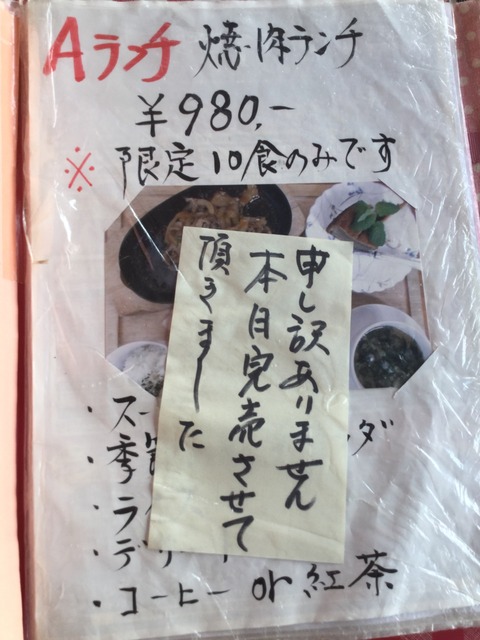 Aランチ 焼肉ランチ
¥980.-
※ 限定10食のみです
申し訳ありません
本日完売させて
頂きました
・ス
・季
・ラ
・デ
・コーヒー or 紅茶